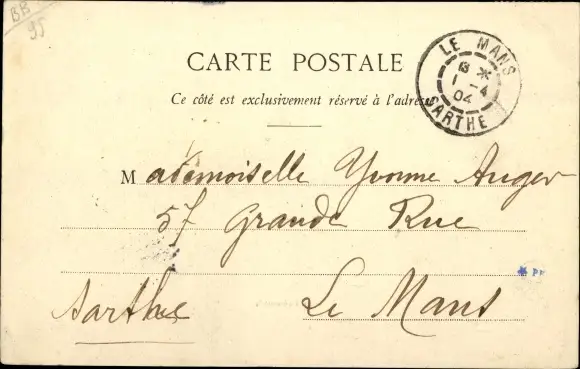 BB
95
CARTE POSTALE
Ce côté est exclusivement réservé à l'adresse
LE MANS
SARTHE
1 -4
04
Mademoiselle Yvonne Auger
57 Grande Rue
Le Mans
Sarthe